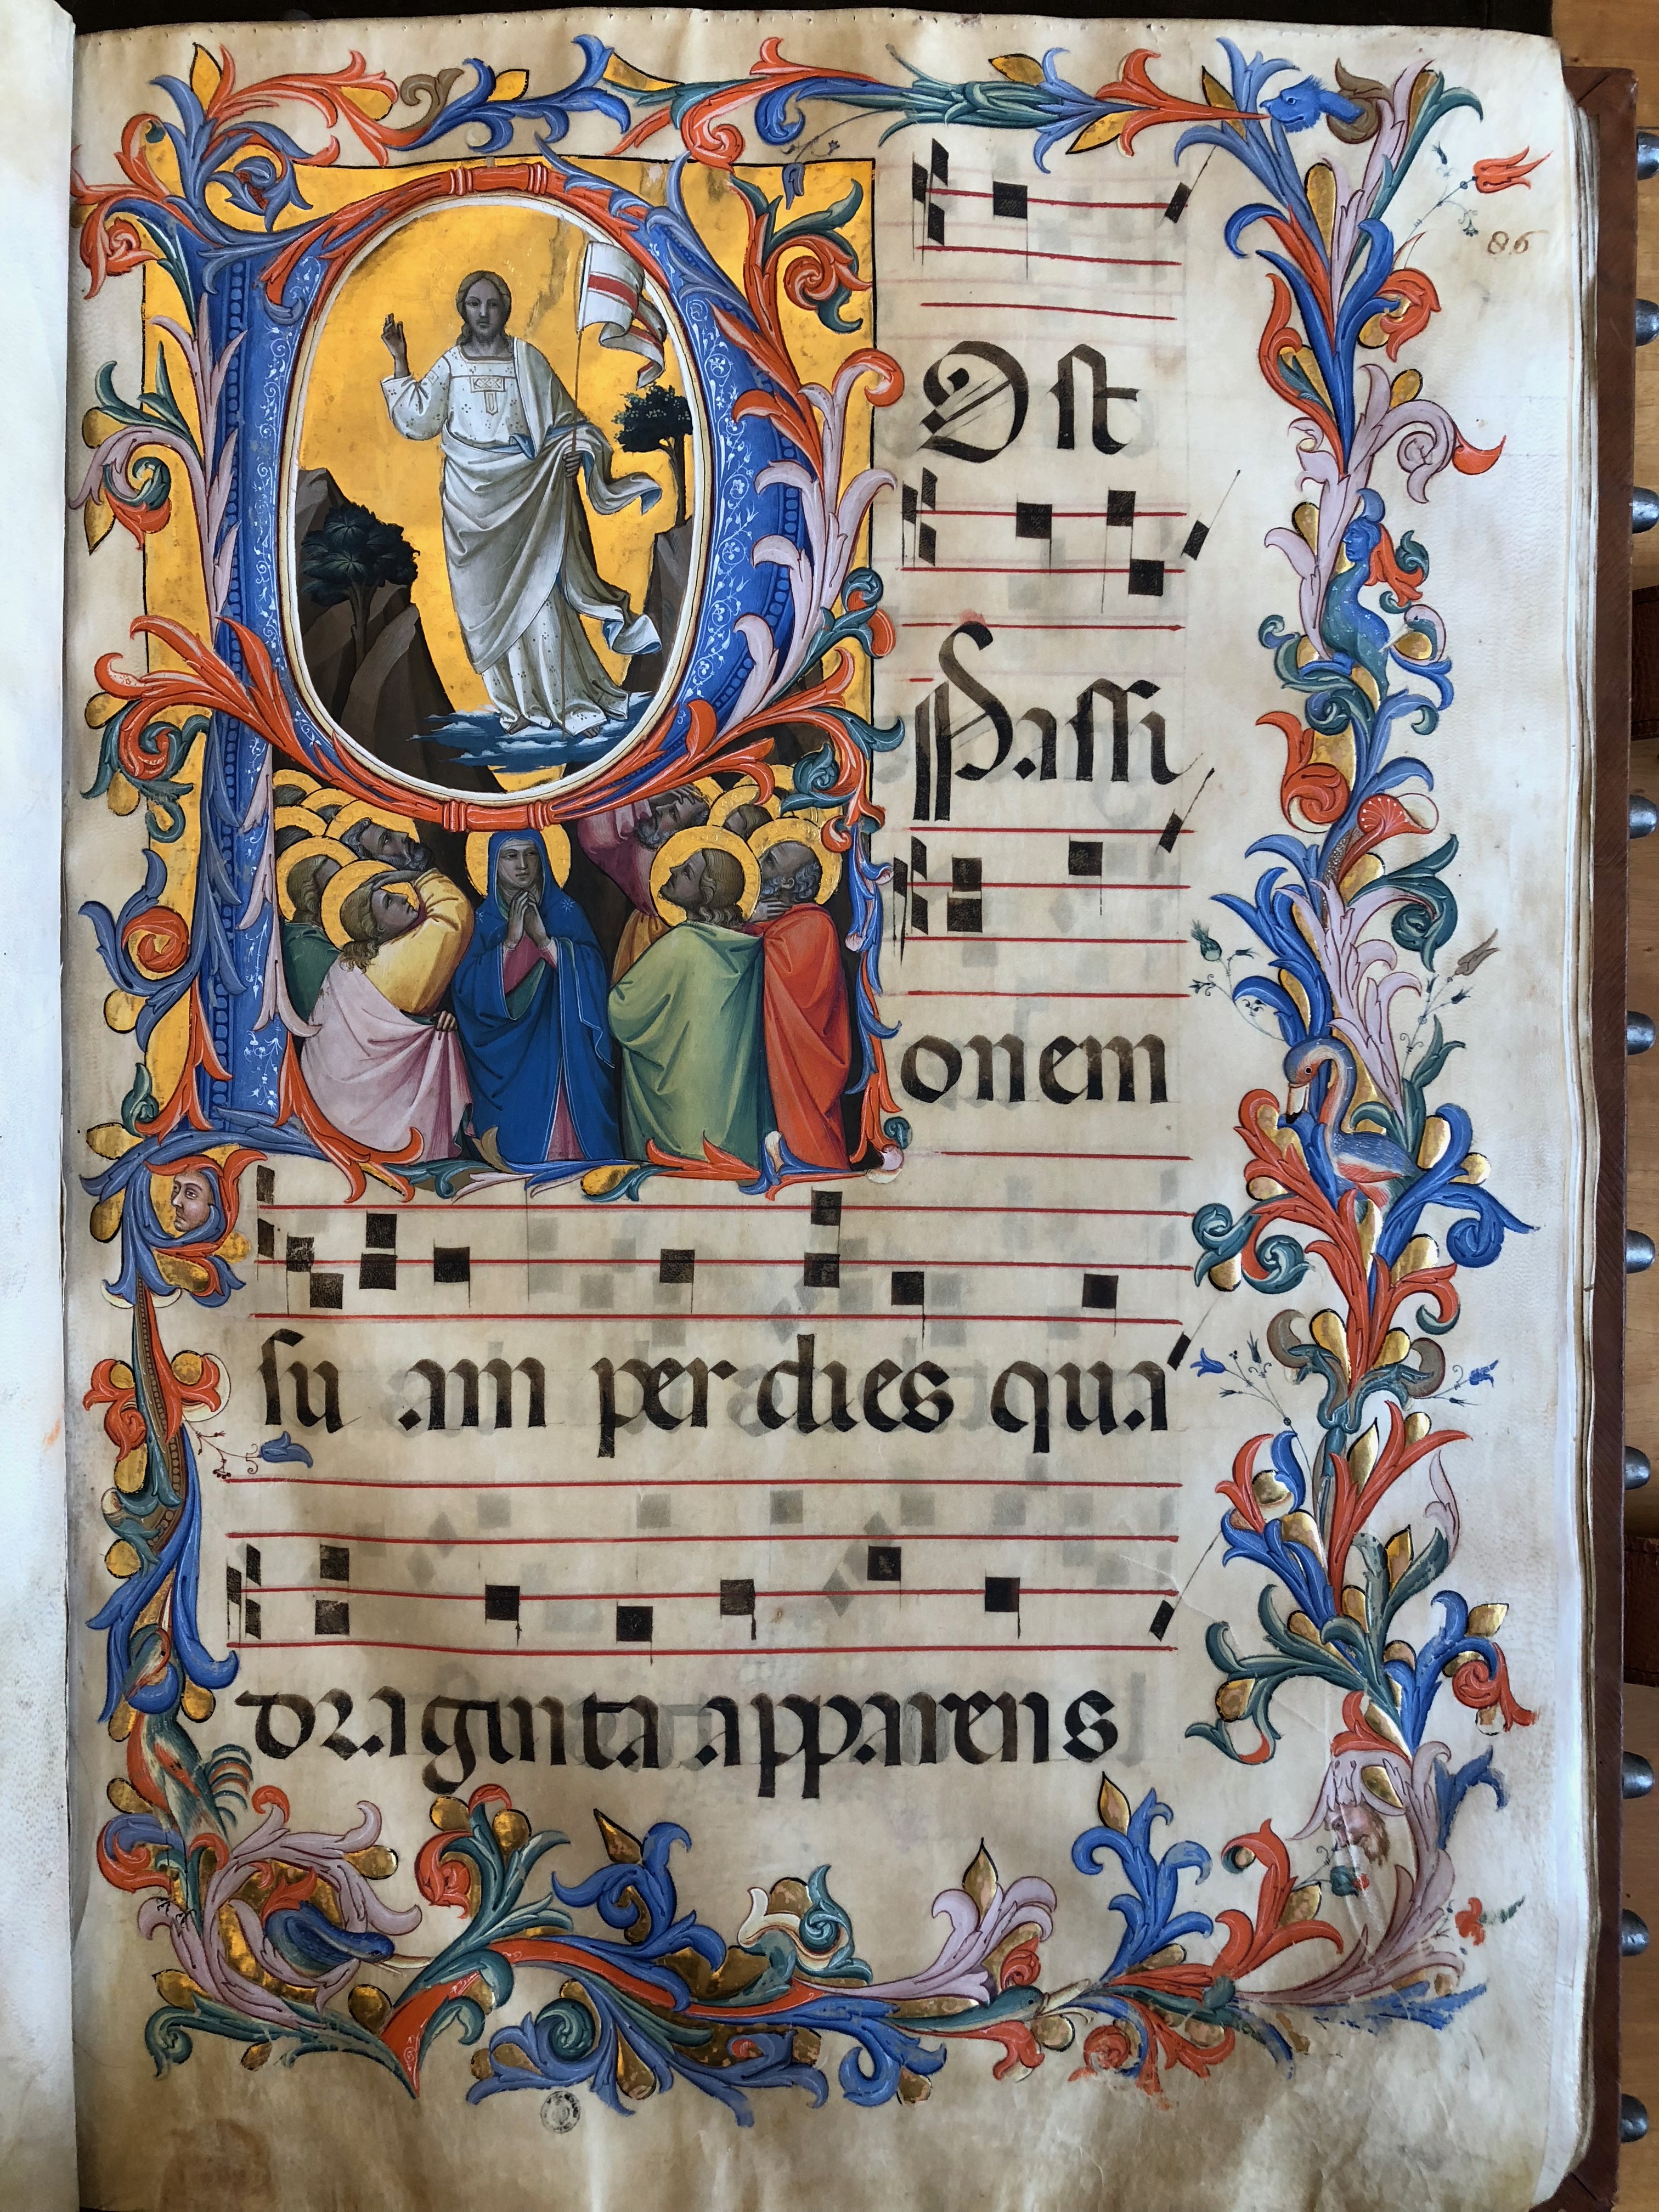 86
Post
Passi
onem
su am per dies qua
draginta apparens